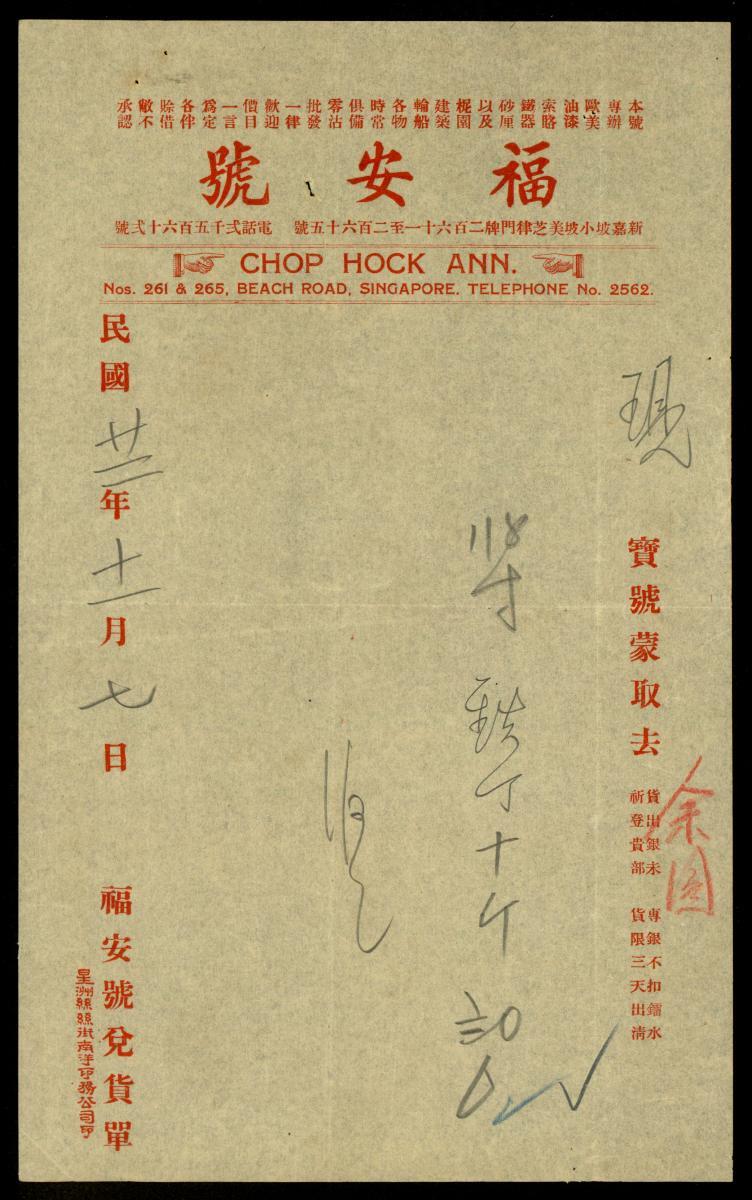 本號專辦歐美油漆索賂鐵器砂厘以及柅園建築輪船各物時常俱備零沽批發一律歡迎價目一言為定各伴賒借敝不承認
福安號
新嘉坡小坡美芝律門牌二百六十一至二百六十五號 電話弍千五百六十弍號
CHOP HOCK ANN.
Nos. 261 & 265, BEACH ROAD, SINGAPORE. TELEPHONE No. 2562.
現
寶號蒙取去
貨出銀未 專銀不扣鐳水
祈登貴部 貨限三天出清
余園
丁十斤
民國廿二年十一月七日
福安號兌貨單
星洲絲絲街南洋印務公司印